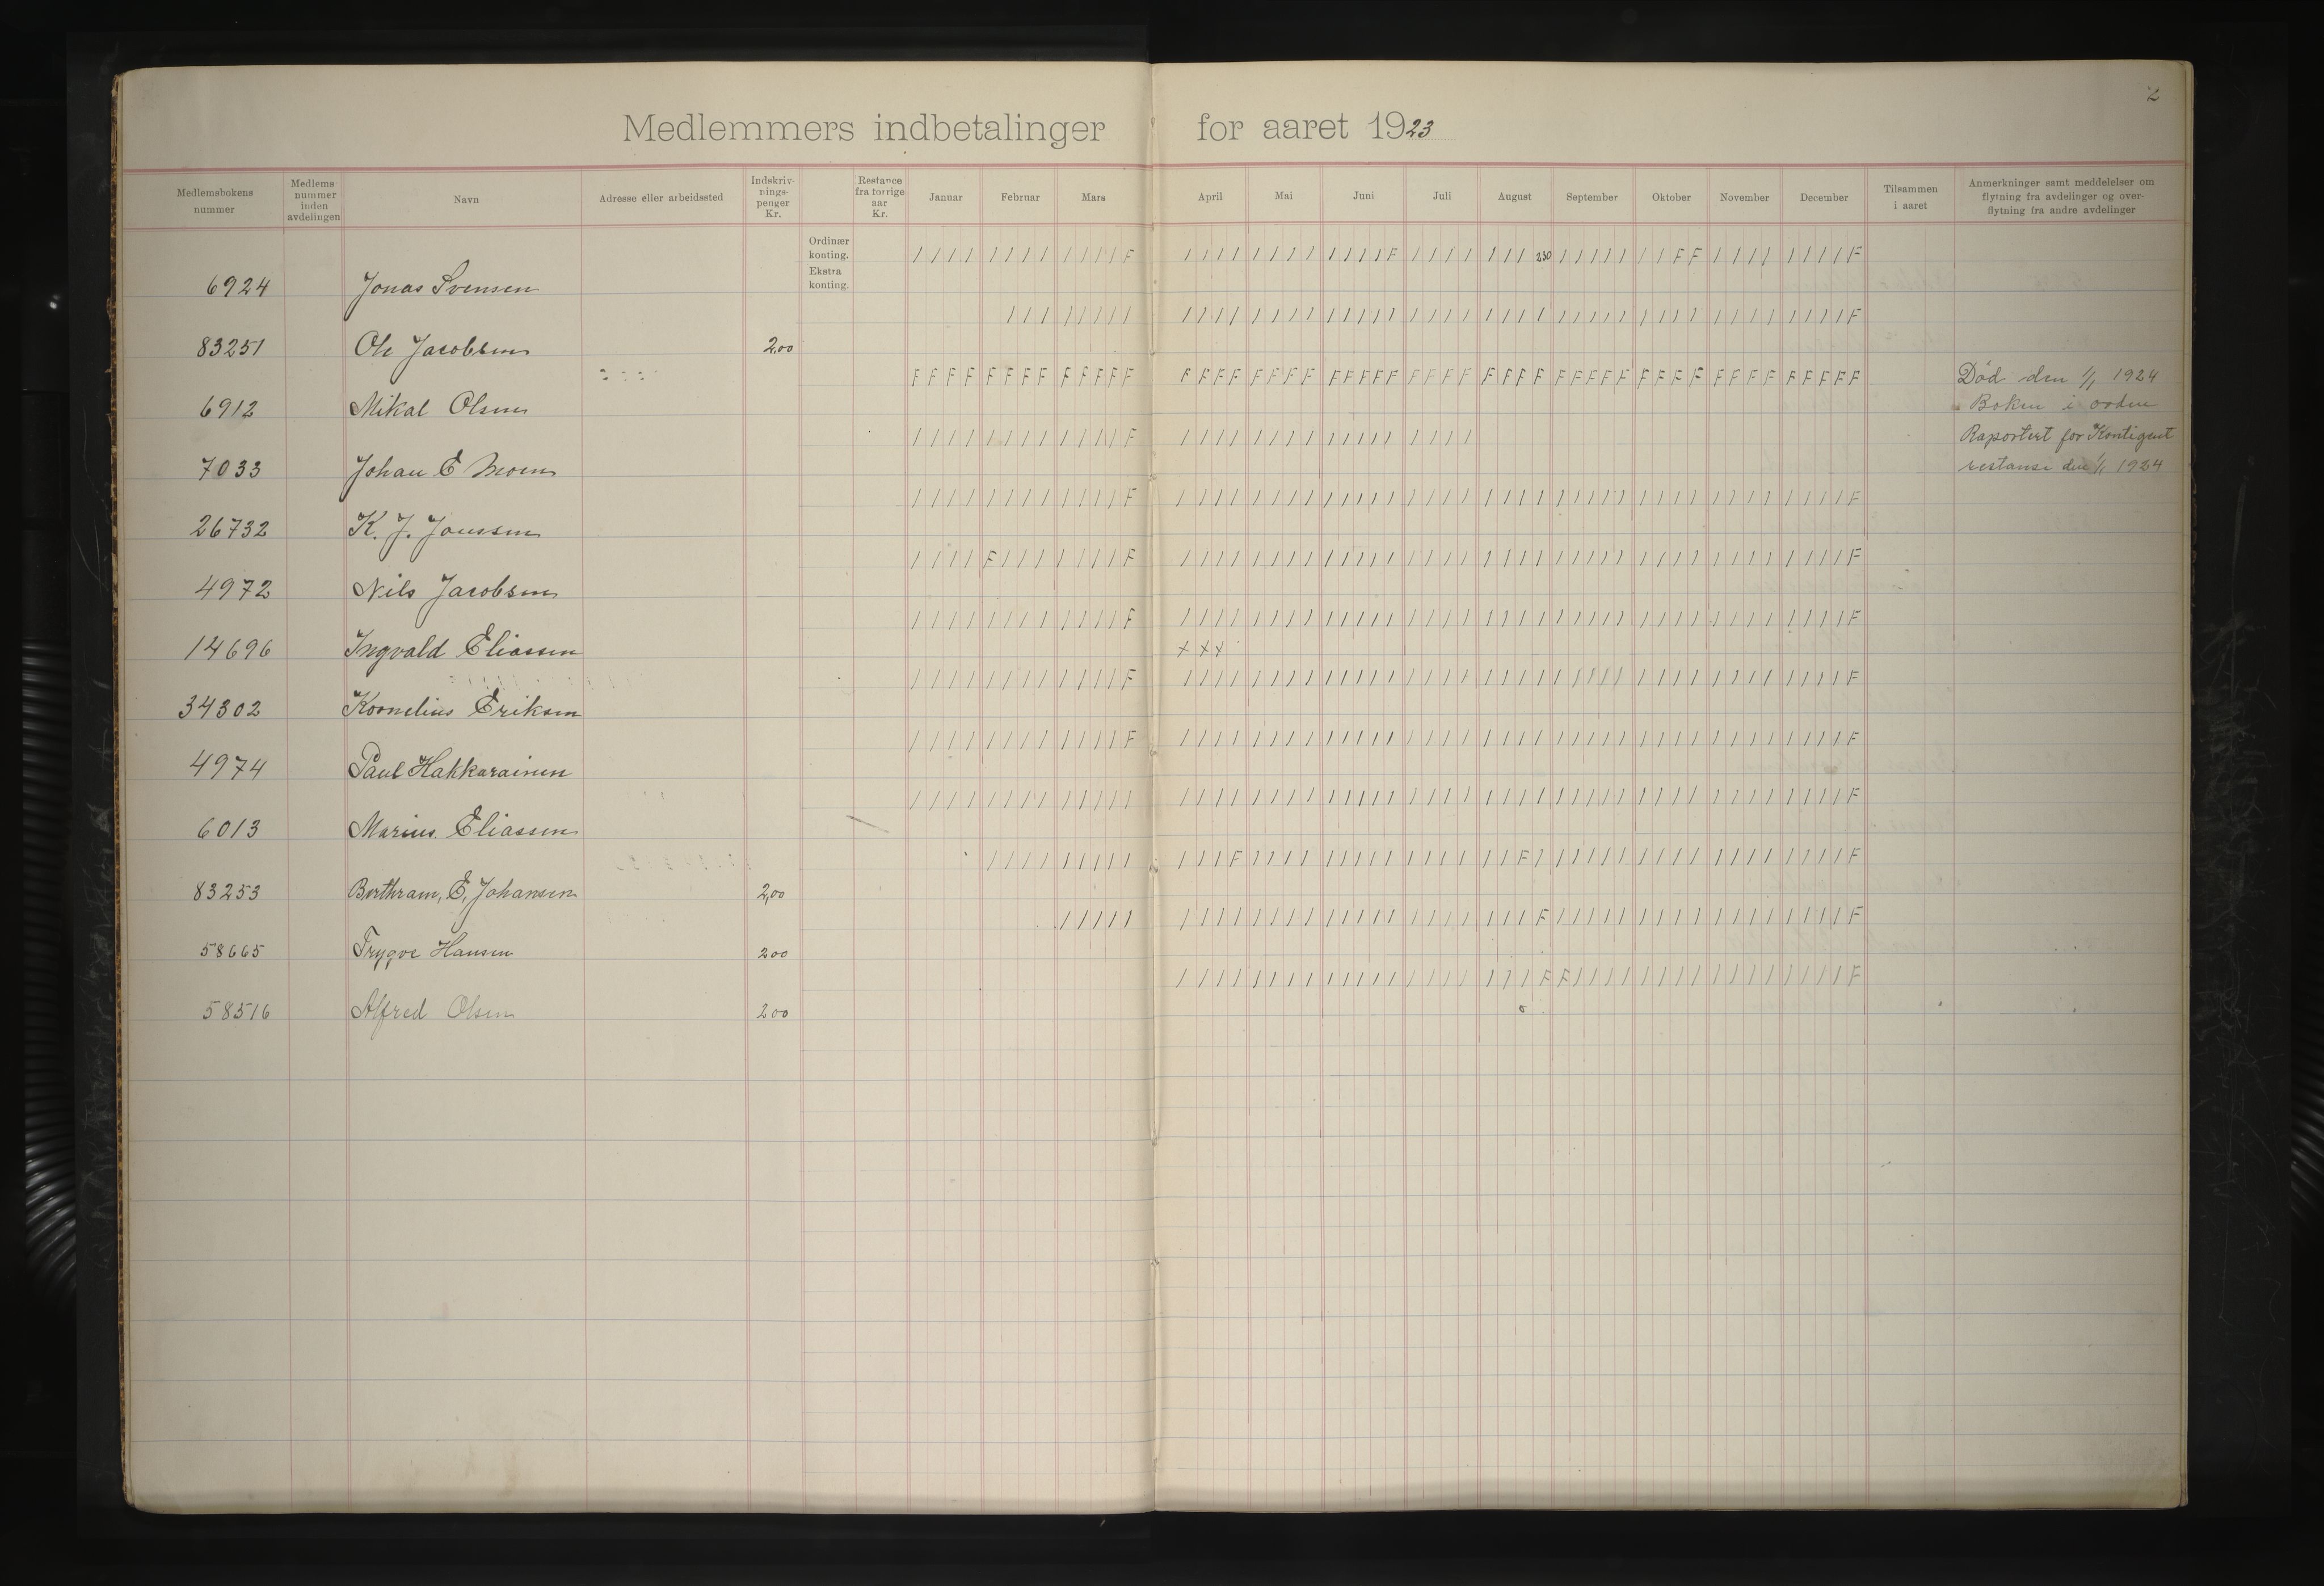 2
Medlemmers indbetalinger for aaret 1923
Medlemsbokens nummer | Medlems-nummer inden avdelingen | Navn | Adresse eller arbeidssted | Indskriv-nings-penger Kr. | Restance fra forrige aar Kr. | Januar | Februar | Mars | April | Mai | Juni | Juli | August | September | Oktober | November | December | Tilsammen i aaret | Anmerkninger samt meddelelser om flytning fra avdelinger og over-flytning fra andre avdelinger
Ordinær konting. / / / / | / / / / | / / / / F | / / / / | / / / / | / / / / F | / / / / | / / / 2 50 | / / / / / | / / F F | / / / / | / / / / F
Ekstra konting.
6924 Jonas Svensen
/ / / | / / / / / | / / / / | / / / / | / / / / / | / / / / | / / / / | / / / / / | / / / / | / / / / | / / / / F
83251 Ole Jacobsen 2,00
F F F F | F F F F | F F F F F | F F F F | F F F F | F F F F F | F F F F | F F F F | F F F F F | F F F F | F F F F | F F F F F | Död den 1/1 1924
6912 Mikal Olsen Boken i orden
/ / / / | / / / / | / / / / F | / / / / | / / / / | / / / / / | / / / / | Raportert for Kontigent
7033 Johan E Moen restanse den 1/1 1924
/ / / / | / / / / | / / / / F | / / / / | / / / / | / / / / / | / / / / | / / / / | / / / / / | / / / / | / / / / | / / / / F
26732 K. J. Janssen
/ / / / | F / / / | / / / / F | / / / / | / / / / | / / / / / | / / / / | / / / / | / / / / / | / / / / | / / / / | / / / / F
4972 Nils Jacobsen
/ / / / | / / / / | / / / / F | / / / / | / / / / | / / / / / | / / / / | / / / / | / / / / / | / / / / | / / / / | / / / / F
14696 Ingvald Eliassen + + +
/ / / / | / / / / | / / / / F | / / / / | / / / / | / / / / / | / / / / | / / / / | / / / / / | / / / / | / / / / | / / / / F
34302 Kornelius Eriksen
/ / / / | / / / / | / / / / F | / / / / | / / / / | / / / / / | / / / / | / / / / | / / / / / | / / / / | / / / / | / / / / F
4974 Paul Hakkarainen
/ / / / | / / / / | / / / / / | / / / / | / / / / | / / / / / | / / / / | / / / / | / / / / / | / / / / | / / / / | / / / / F
6013 Marius. Eliassen
/ / / / | / / / / / | / / / F | / / / / | / / / / / | / / / / | / / F / | / / / / / | / / / / | / / / / | / / / / F
83253 Berthram, E, Johansen 2,00
/ / / / / | / / / / | / / / / | / / / / / | / / / / | / / / F | / / / / / | / / / / | / / / / | / / / / F
58665 Trygve Hansen 2 00
/ / / / | / / / / | / / / / / | / / / / | / / / F | F / / / / | / / / / | / / / / | / / / / F
58516 Alfred Olsen 2 00